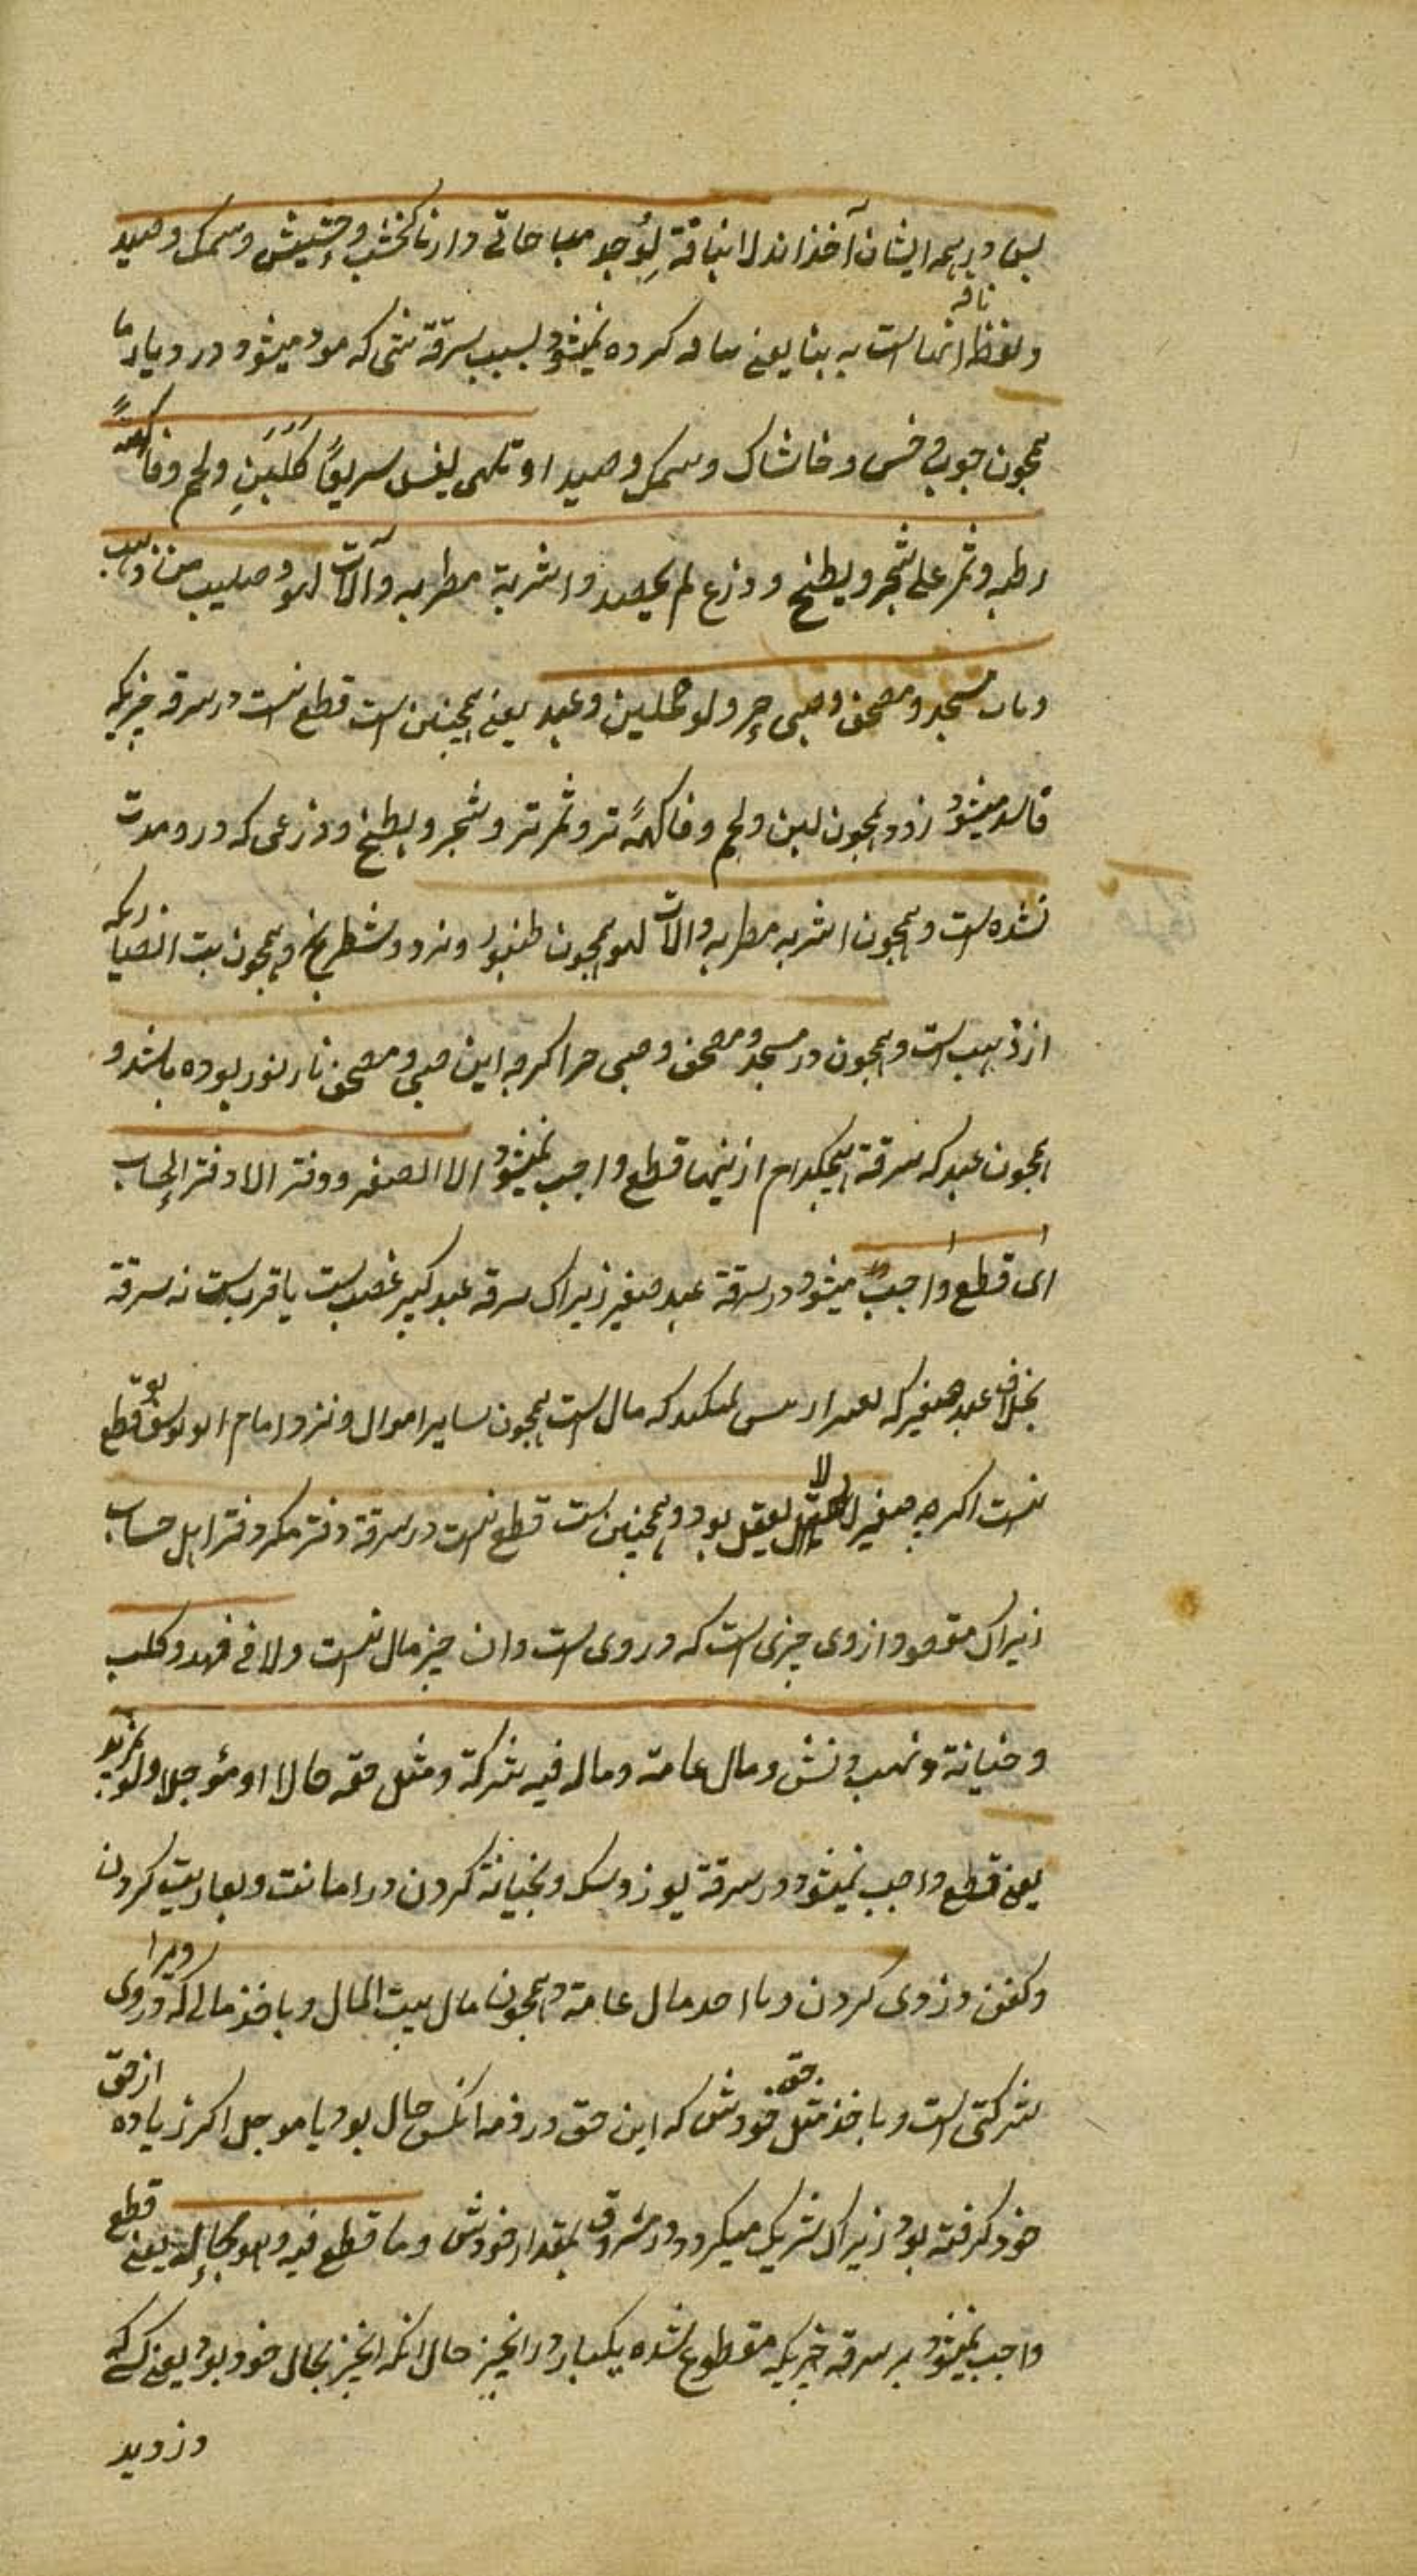 پس در همه ایشان آخذاند لا بتافه یوجد مباحا فی دارنا کخشب و حشیش و سمک و صید
تافه
و لفظ انها است به بتا یعنی کرده نمیشود بسبب سرقة شئی که موجود میشود در دیار ما
همچون چوب و خس و خاشاک و سمک و صید او تلهی یفسد سریعًا کلبنٍ و لحم و فاکهةً
رطبه و ثمر علی شجر و بطیخ و زرع لم یحصد و اشربة مطربه و آلات لهو و صلیب من ذهب
و باب مسجد و مصحف و صبی حرٍ و لو محلیین و عبد یعنی همچنین است قطع نیست در سرقه چیزیکه
فاسد میشود زود همچون لبن و لحم و فاکهةً تر و ثمر تر و شجر و بطیخ و زرعی که درو مدت
نشده است و همچون اشربه مطربه و الات لهو همچون طنبور و نرد و شطرنج و همچون بت انصیا را که
از ذهب است و همچون در مسجد و مصحف و صبی حر اگرچه این صبی و مصحف بوده باشد و
همچون عبد که سرقة هیچکدام ازینها قطع واجب نمیشود الا الصغیر و دفتر الا دفتر الحساب
ای قطع واجب میشود در سرقة عبد صغیر زیراک سرقه عبد کبیر غصب است یا فریب است نه سرقة
بخلاف عبد صغیر که که مال است همچون سایر اموال و نزد امام ابو یوسف قطع
نیست اگرچه صغیر لا یعقل بود و همچنین است قطع نیست در سرقة دفتر مگر دفتر اهل حساب
زیراک مقصود از وی چیزی است که در وی است و ان چیز مال نیست و لا فی فهد و کلب
و خیانة و نهب و نبش و مال عامة و ماله فیه شرکة و مثل حقه حالا او مؤجلا و لو بمزید
یعنی قطع واجب نمیشود در سرقة یوز و سک و بخیانة کردن در امانت و بغارت کردن
و کفن دزدی کردن و با اخذ مال عامة و همچون مال بیت المال و باخذ مالی که در وی ویرا
شرکتی است و باخذ مثل حق خودش که این حق در ذمه انکس حال بود یا موجل اگر زیاده از حق
خود کرفته بود زیراک شریک میکردد در مسروق بمقدار خودش و ما قطع فیه و هو بحاله یعنی قطع
واجب نمیشود بر سرقه چیزیکه مقطوع شده یکبار در انچیز حال انکه انچیز بحال خود بود یعنی کسی که
دزدید